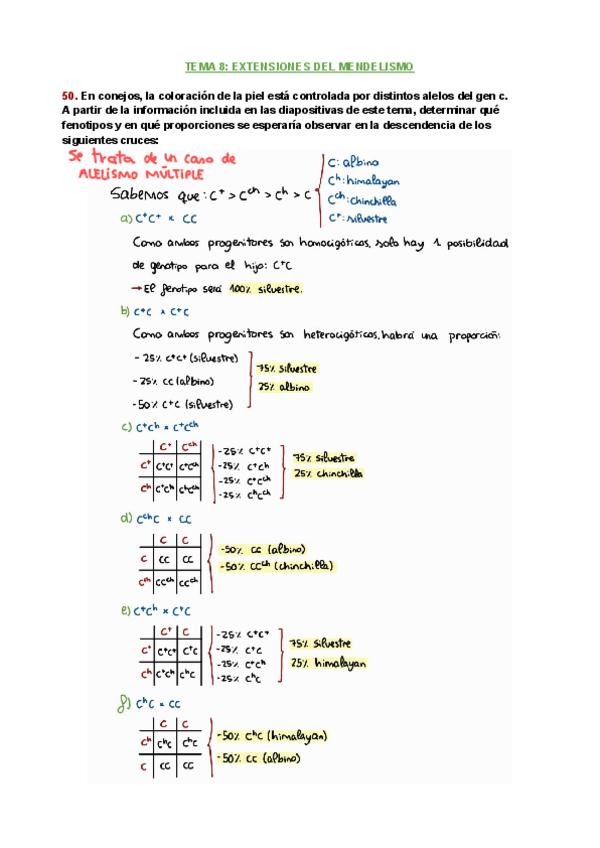 TEMA 8: EXTENSIONES DEL MENDELISMO
50. En conejos, la coloración de la piel está controlada por distintos alelos del gen c.
A partir de la información incluida en las diapositivas de este tema, determinar qué
fenotipos y en qué proporciones se esperaría observar en la descendencia de los
siguientes cruces:
Se trata de un caso de
ALELISMO MÚLTIPLE
Sabemos que: C⁺ > Cᶜʰ > Cʰ > C
C: albino
Cʰ: himalayan
Cᶜʰ: chinchilla
C⁺: silvestre
a) C⁺C⁺ x CC
Como ambos progenitores son homocigóticos, solo hay 1 posibilidad
de genotipo para el hijo: C⁺C
→ El fenotipo será 100% silvestre.
b) C⁺C x C⁺C
Como ambos progenitores son heterocigóticos, habrá una proporción:
- 25% C⁺C⁺ (silvestre)
- 25% CC (albino)
- 50% C⁺C (silvestre)
75% silvestre
25% albino
c) C⁺Cʰ x C⁺Cᶜʰ
C⁺ Cᶜʰ
C⁺ C⁺C⁺ C⁺Cᶜʰ
Cʰ C⁺Cʰ CʰCᶜʰ
-25% C⁺C⁺
-25% C⁺Cʰ
-25% C⁺Cᶜʰ
-25% CʰCᶜʰ
75% silvestre
25% chinchilla
d) CᶜʰC x CC
C C
C CC CC
Cᶜʰ CCᶜʰ CCᶜʰ
-50% CC (albino)
-50% CCᶜʰ (chinchilla)
e) C⁺Cʰ x C⁺C
C⁺ C
C⁺ C⁺C⁺ C⁺C
Cʰ C⁺Cʰ CʰC
-25% C⁺C⁺
-25% C⁺C
-25% C⁺Cʰ
-25% CʰC
75% silvestre
25% himalayan
f) CʰC x CC
C C
Cʰ CʰC CʰC
C CC CC
-50% CʰC (himalayan)
-50% CC (albino)